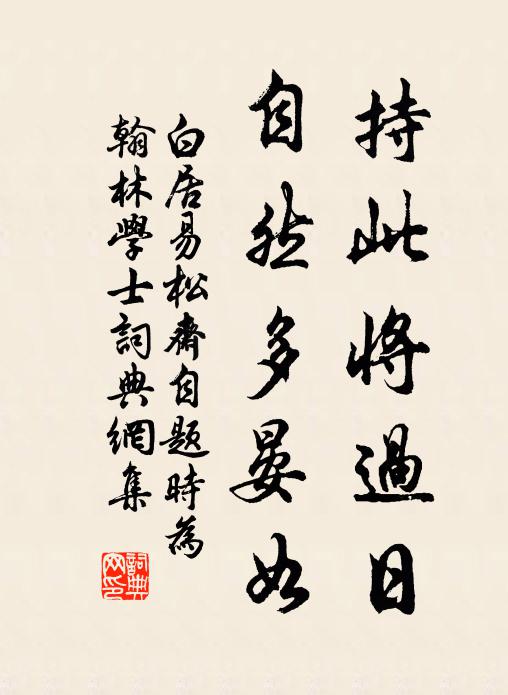 持此將過日
自然多晏如
白居易松齋自題時為
翰林學士詞典網集
詞典
网印